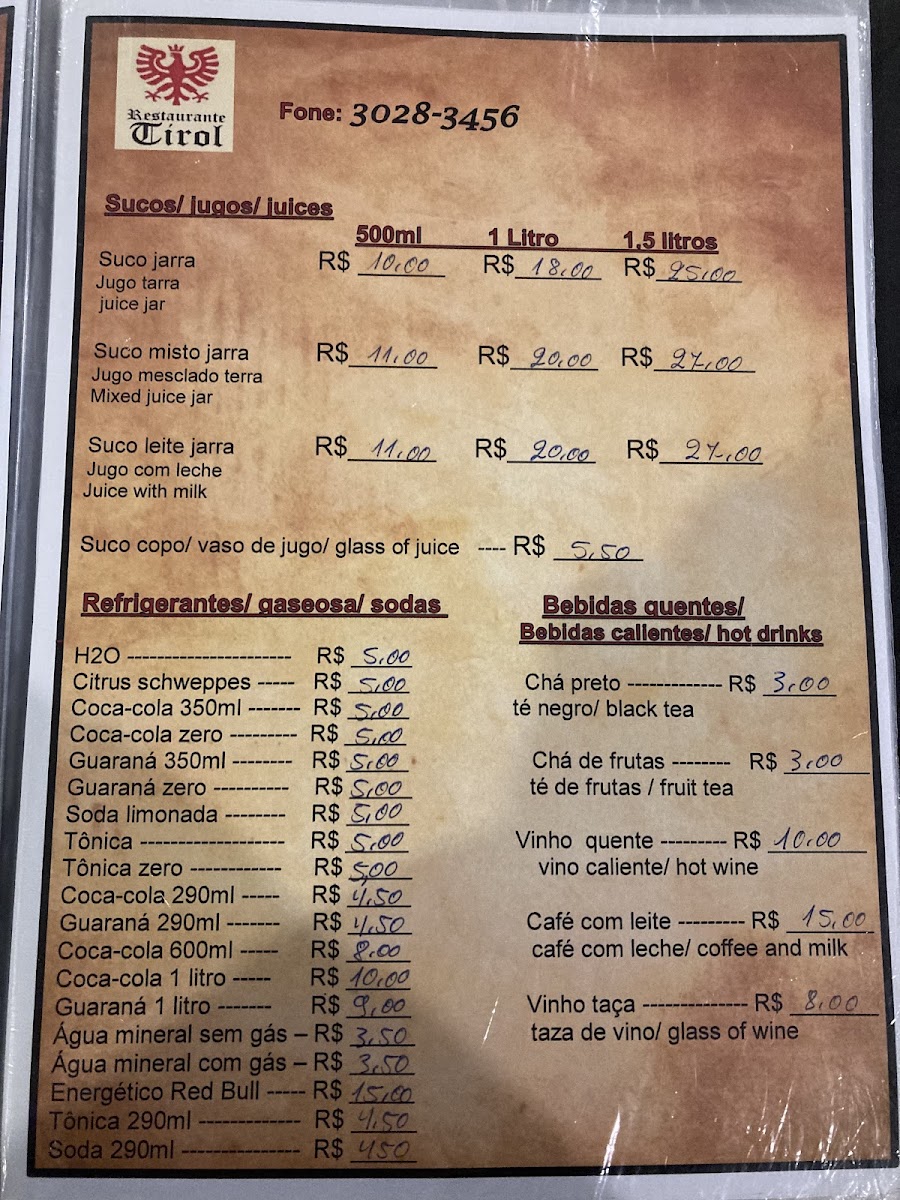 Restaurante
Tirol
Fone: 3028-3456
Sucos/ jugos/ juices
500ml 1 Litro 1,5 litros
Suco jarra R$ 10,00 R$ 18,00 R$ 25,00
Jugo tarra
juice jar
Suco misto jarra R$ 11,00 R$ 20,00 R$ 27,00
Jugo mesclado terra
Mixed juice jar
Suco leite jarra R$ 11,00 R$ 20,00 R$ 27,00
Jugo com leche
Juice with milk
Suco copo/ vaso de jugo/ glass of juice ---- R$ 5,50
Refrigerantes/ gaseosa/ sodas
H2O ---------------------- R$ 5,00
Citrus schweppes ----- R$ 5,00
Coca-cola 350ml ------- R$ 5,00
Coca-cola zero --------- R$ 5,00
Guaraná 350ml -------- R$ 5,00
Guaraná zero ---------- R$ 5,00
Soda limonada -------- R$ 5,00
Tônica ------------------- R$ 5,00
Tônica zero ------------ R$ 5,00
Coca-cola 290ml ----- R$ 4,50
Guaraná 290ml ------- R$ 4,50
Coca-cola 600ml ----- R$ 8,00
Coca-cola 1 litro ----- R$ 10,00
Guaraná 1 litro ------- R$ 9,00
Água mineral sem gás – R$ 3,50
Água mineral com gás – R$ 3,50
Energético Red Bull ----- R$ 15,00
Tônica 290ml -------------- R$ 4,50
Soda 290ml ---------------- R$ 450
Bebidas quentes/
Bebidas calientes/ hot drinks
Chá preto ------------- R$ 3,00
té negro/ black tea
Chá de frutas -------- R$ 3,00
té de frutas / fruit tea
Vinho quente --------- R$ 10,00
vino caliente/ hot wine
Café com leite --------- R$ 15,00
café com leche/ coffee and milk
Vinho taça -------------- R$ 8,00
taza de vino/ glass of wine